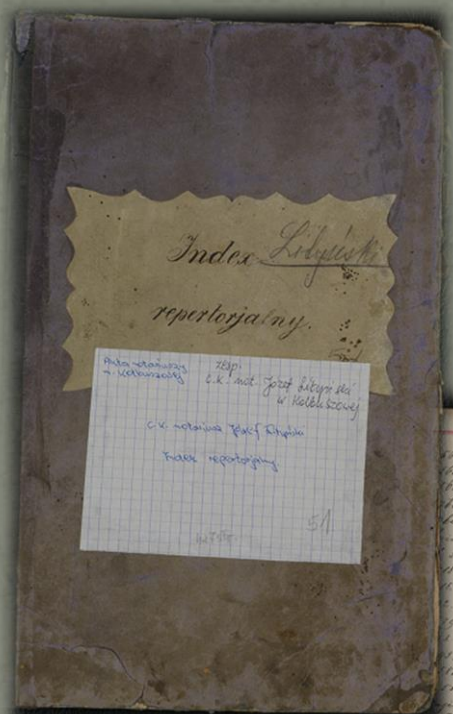 Index Lityński
repertorjalny.
Akta notariuszy
w Kolbuszowej
zesp.
c.k. not. Józef Lityński
w Kolbuszowej
c.k. notariusz Józef Lityński
Index repertorjalny
51